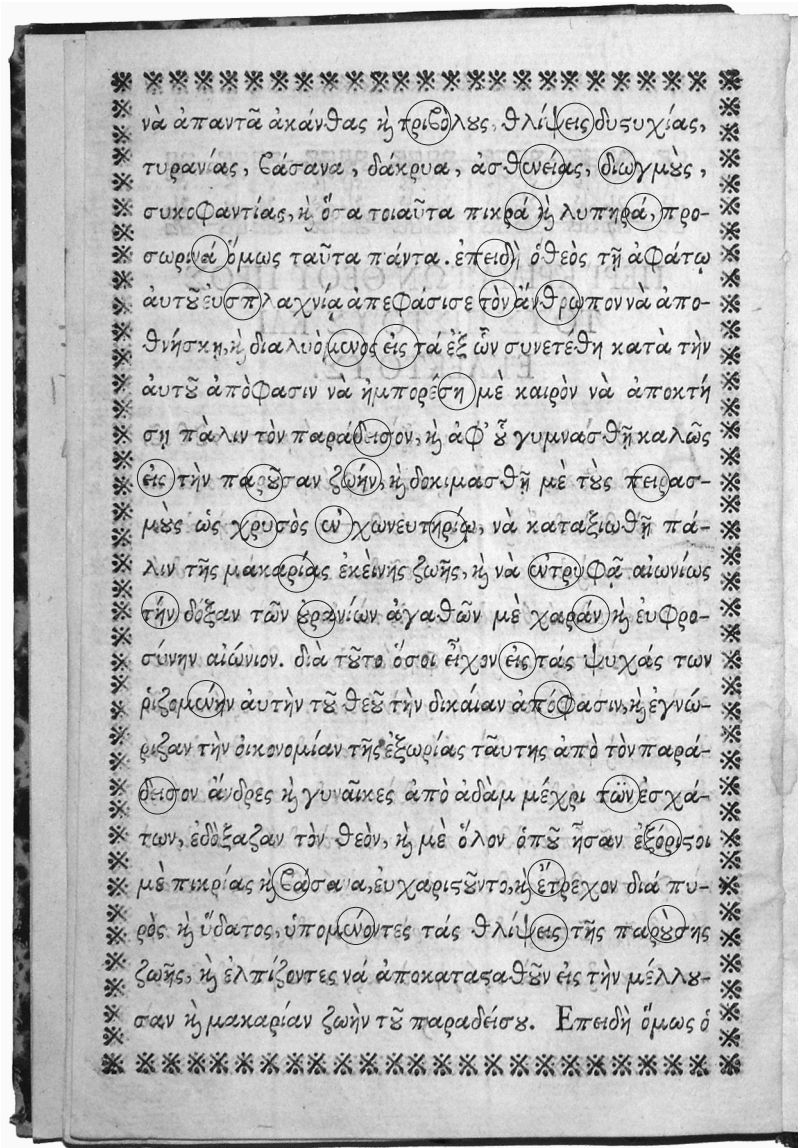 νὰ ἀπαντᾶ ἀκάνθας ϗ̀ τριβόλȣς, θλίψεις δυςυχίας,
τυρανίας, βάσανα, δάκρυα, ἀσθενείας, διωγμȣ̀ς,
συκοφαντίας, ϗ̀ ὅσα τοιαῦτα πικρά ϗ̀ λυπηρά, προ-
σωρινά ὅμως ταῦτα πάντα. ἐπειδὴ ὁ θεὸς τῇ ἀφάτῳ
ἀυτȣ͂ ἐυσπλαχνίᾳ ἀπεφάσισε τὸν ἄνθρωπον νὰ ἀπο-
θνήσκῃ, ϗ̀ διαλυόμενος εἰς τά ἐξ ὧν συνετέθη κατὰ τὴν
ἀυτȣ͂ ἀπὸφασιν νὰ ἠμπορέσῃ μὲ καιρὸν νὰ ἀποκτή
σῃ πὰλιν τὸν παράδεισον, ϗ̀ ἀφ' ȣ̓͂ γυμνασθῇ καλῶς
εἰς τὴν παρȣ͂σαν ζωήν, ϗ̀ δοκιμασθῇ μὲ τȣ̀ς πειρασ-
μȣ̀ς ὡς χρυσὸς ἐν χωνευτηρίῳ, νὰ καταξιωθῇ πά-
λιν τῆς μακαρίας ἐκὲινης ζωῆς, ϗ̀ νὰ ἐντρυφᾷ αἰωνίως
τὴν δόξαν τῶν ȣ̓ρανίων ἀγαθῶν μὲ χαράν ϗ̀ ἐυφρο-
σύνην αἰώνιον. διὰ τȣ͂το ὅσοι εἶχον εἰς τάς ψυχάς των
ῥιζομένην αυτὴν τȣ͂ θεȣ͂ τὴν δικάιαν απόφασιν, ϗ̀ ἐγνώ-
ριξαν τὴν οἰκονομίαν τῆς ἐξωρίας ταύτης ἀπὸ τὸν παρά-
δεισον ἄνδρες ϗ̀ γυναῖκες ἀπὸ ἀδὰμ μέχρι τῶν ἐσχά-
των, ἐδὸξαζαν τὸν θεὸν, ϗ̀ μὲ ὅλον ὁπȣ͂ ἦσαν ἐξόριςοι
μὲ πικρίας ϗ̀ βάσανα, ευχαριςȣ͂ντο, ϗ̀ ἔτρεχον διά πυ-
ρὸς ϗ̀ ὕδατος, ὑπομένοντες τάς θλίψεις τῆς παρȣ̀σης
ζωῆς, ϗ̀ ἐλπίζοντες νά ἀποκαταςαθȣ͂ν εἰς τὴν μέλλȣ-
σαν ϗ̀ μακαρίαν ζωὴν τȣ͂ παραδείσȣ. Ἐπειδὴ ὅμως ὁ